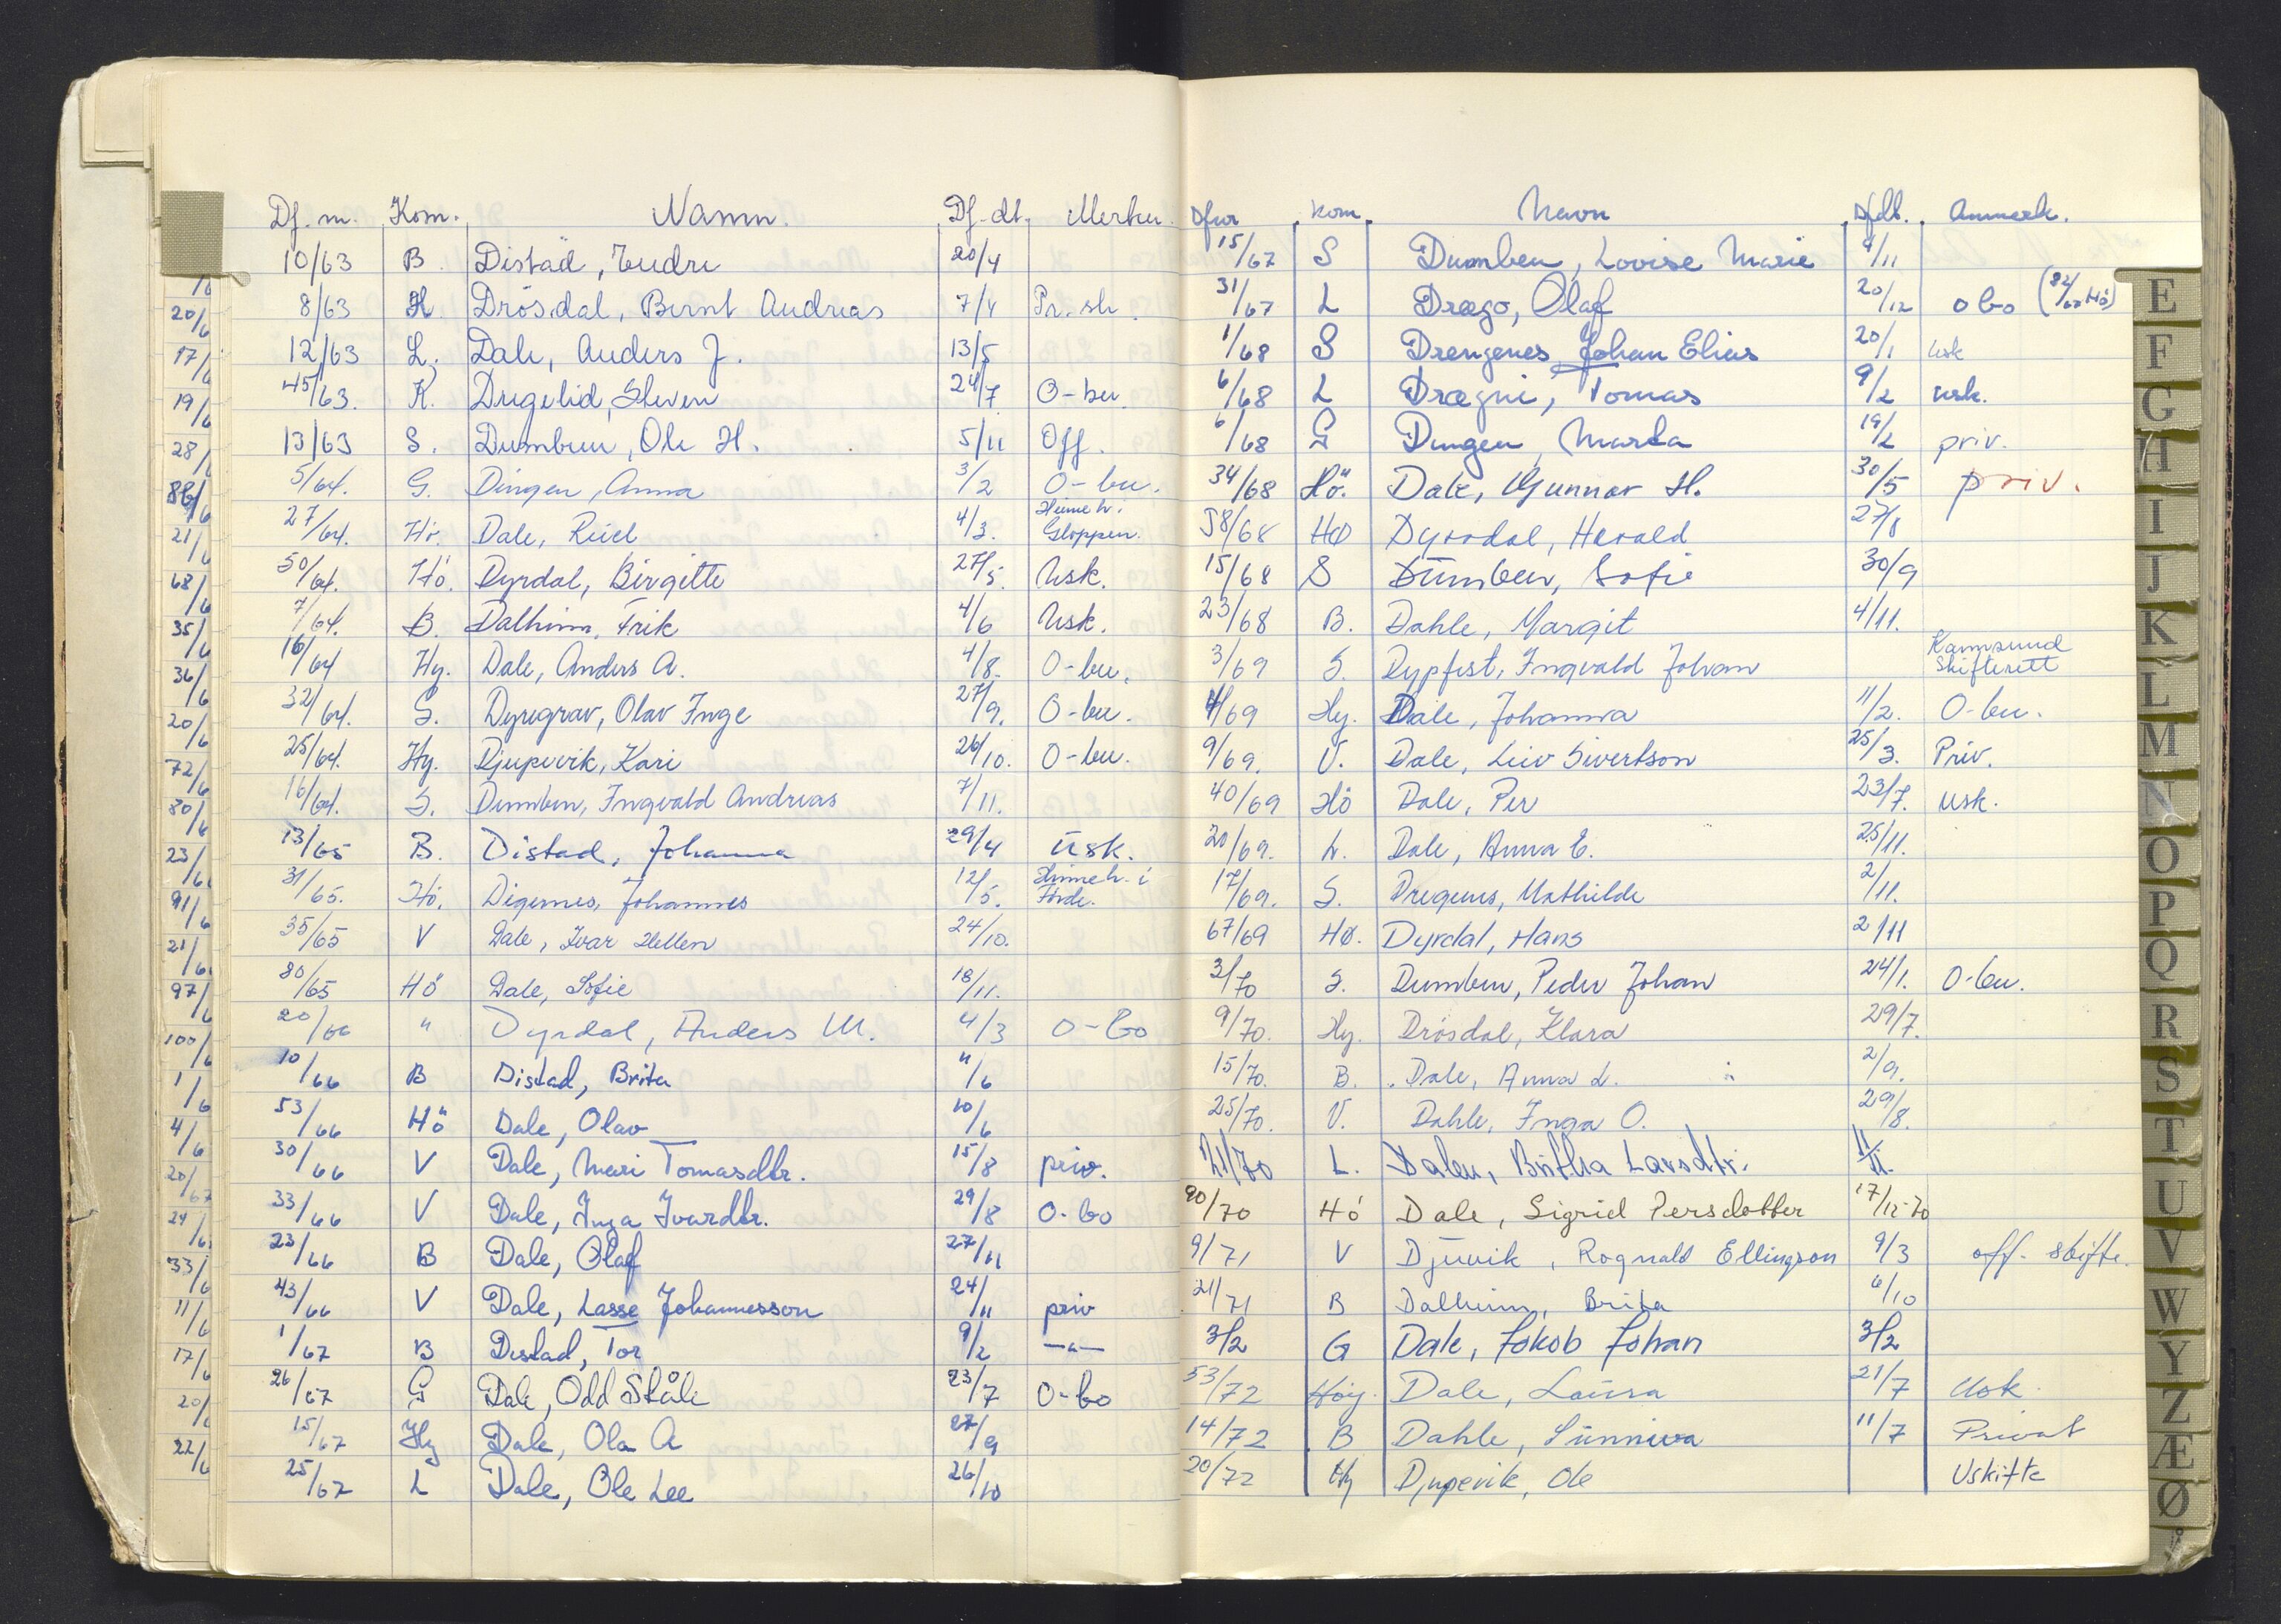 Df. nr. Kom. Namn. Df.-dt. Merkn.
10/63 B Distad, Endre 20/4
8/63 H Drösdal, Bernt Andreas 7/4 Pr. sk.
12/63 L. Dale, Anders J. 13/5
45/63. K. Drageli​d, Steven 24/7 O-bu
13/63 S. Dumben, Ole H. 5/11 Off.
5/64. G. Dingen, Anna 3/2 O-bu.
27/64. Hö. Dale, Reiel 4/3. Heimeh. Gloppen.
50/64. Hö. Dyrdal, Birgitte 27/5. Usk.
7/64. B. Dalheim, Erik 4/6 Usk.
16/64 Hy. Dale, Anders A. 4/8. O-bu.
32/64. S. Dyregrav, Olav Inge 27/9. O-bu.
25/64. Hy. Djupevik, Kari 26/10. O-bu.
16/64. S. Dumben, Ingvald Andreas 7/11.
13/65 B. Distad, Johanna 29/4 Usk.
31/65. Hö. Digernes, Johannes 12/5. Heimeh. i Förde.
35/65 V Dale, Ivar Hellen 24/10.
80/65 Hö Dale, Sofie 18/11.
20/66 " Dyrdal, Anders M. 4/3 O-bo
10/66 B Distad, Brita 11/6
53/66 Hö Dale, Olav 10/6
30/66 V Dale, Mari Tomasdtr. 15/8 priv.
33/66 V Dale, Inga Ivardtr. 29/8 O-bo
23/66 B Dale, Olaf 27/11
43/66 V Dale, Lasse Johannesson 24/11 priv
1/67 B Distad, Tor 9/2 —"—
26/67 G Dale, Odd Ståle 23/7 O-bo
15/67 Hy Dale, Ola A 27/9
25/67 L Dale, Ole Lee 26/10
Dfnr kom. Navn Dfdt. Anmerk.
15/67 S Dumben, Lovise Marie 9/11
31/67 L Drægo, Olaf 20/12 obo (82/60 Hö)
1/68 S Drengenes, Johan Elias 20/1 usk
6/68 L Drægni, Tomas 9/2 usk.
6/68 G Dingen, Marta 19/2 priv.
34/68 Hö. Dale, Gunnar H. 30/5 priv.
58/68 HØ Dyrdal, Herald 27/8
15/68 S Dumben, Sofie 30/9
23/68 B. Dahle, Margit 4/11.
3/69 S. Dypfest, Ingvald Johan Karmsund Skifterett
4/69 Hy. Dale, Johanna 11/2. O-bu.
9/69. V. Dale, Leiv Sivertson 25/3. Priv.
40/69 Hö Dale, Per 23/7. usk.
20/69. L. Dale, Anna E. 25/11.
17/69. S. Dregenes, Mathilde 2/11.
67/69 HØ. Dyrdal, Hans 2/11
3/70 S. Dumben, Peder Johan 24/1. O-bu.
9/70. Hy. Drösdal, Klara 29/7.
15/70. B. Dale, Anna L. 2/9.
25/70. V. Dahle, Inga O. 29/8.
21/70 L. Dalen, Britha Larsdtr. 11/11.
90/70 Hö Dale, Sigrid Persdotter 17/12-70
9/71 V Djuvik, Rognald Ellingson 9/3 off. skifte.
21/71 B Dalheim, Brita 6/10
3/2 G Dale, Jakob Johan 3/2
53/72 Höy. Dale, Laura 21/7 Usk
14/72 B Dahle, Sunniva 11/7 Privat
20/72 Hy Djupevik, Ole Uskifte
E
F
G
H
I
J
K
L
M
N
O
P
Q
R
S
T
U
V
W
Y
Z
Æ
Ø
Å